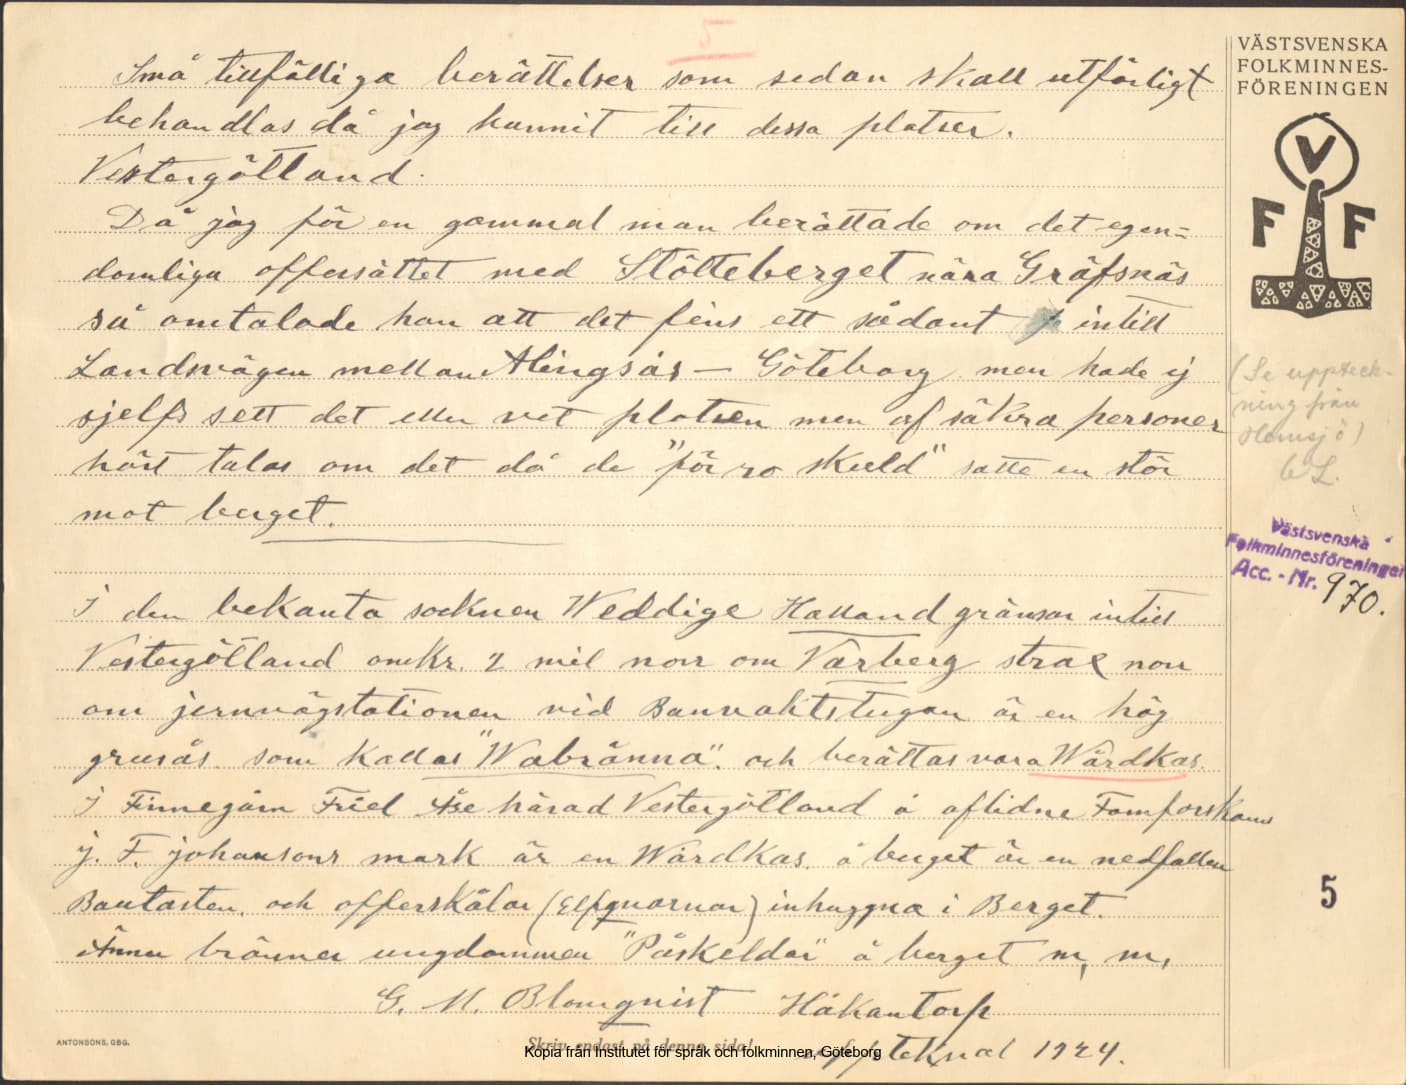 5
Små tillfälliga berättelser som sedan skall utförligt
behandlas då jag hunnit till dessa platser.
Vestergötland.
Då jag för en gammal man berättade om det egen=
domliga offersättet med Stötteberget nära Gräfsnäs
så omtalade han att det fins ett sådant intill
Landsvägen mellan Alingsås — Göteborg men hade ej
sjelf sett det eller vet platsen men af säkra personer
hört talas om det då de "för ro skuld" satte en stör
mot berget.
I den bekanta socknen Weddige Halland gränsar intill
Vestergötland omkr. 2 mil norr om Varberg strax norr
om jernvägstationen vid Banvaktstugan är en hög
grusås som kallas "Wabränna". och berättas vara Wårdkas.
I Finnegårn Friel Åse härad Vestergötland å aflidne Fornforskare
J. F. Johansons mark är en Wårdkas. å berget är en nedfallen
Bautasten. och offerskålar (Elfquarnar) inhuggna i Berget.
Ännu bränner ungdommen "Påskeldar" å berget m, m,
G. M. Blomquist Håkantorp
upptecknat 1924.
VÄSTSVENSKA
FOLKMINNES-
FÖRENINGEN
V
F F
(Se uppteck-
ning från
Hemsjö)
Västsvenska
Folkminnesföreningen
Acc. - Nr. 970.
5
ANTONSONS, GBG.
Skriv endast på denna sida!
Kopia från Institutet för språk och folkminnen, Göteborg